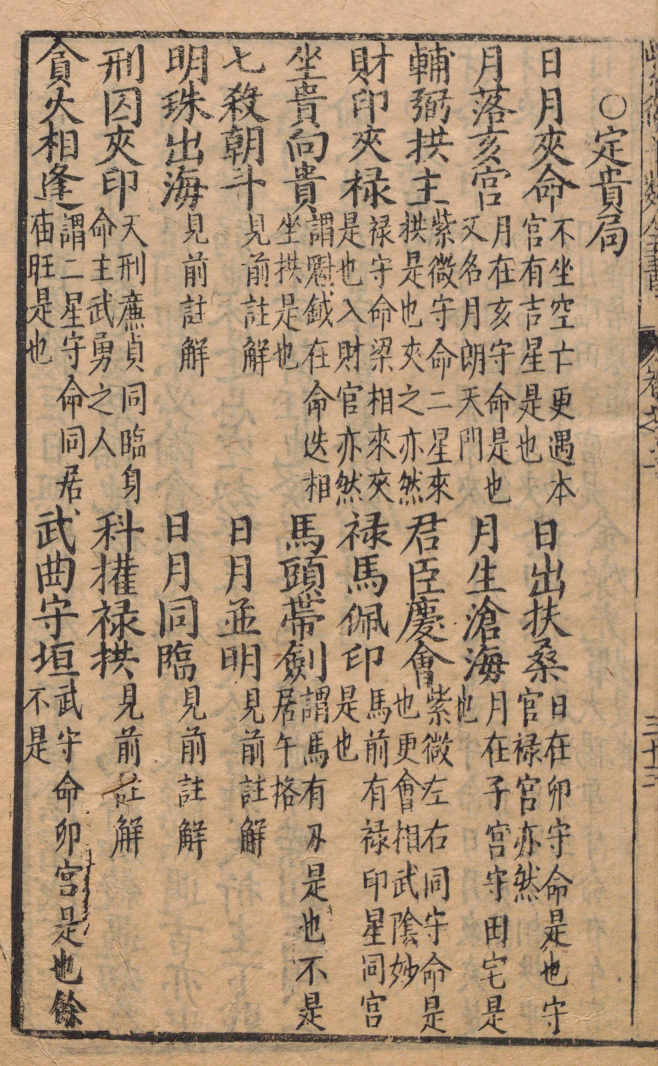 ○定貴局
日月夾命 不坐空亡更遇本宮有吉星是也 日出扶桑 日在卯守命是也守官禄宮亦然
月落亥宮 月在亥守命是也又名月朗天門 月生滄海 月在子宮守田宅是也
輔弼拱主 紫微守命二星來拱是也夾之亦然 君臣慶會 紫微左右同守命是也更會相武陰妙
財印夾禄 禄守命梁相來夾是也入財官亦然 禄馬佩印 馬前有禄印星同宮是也
坐貴向貴 謂魁鉞在命迭相坐拱是也 馬頭帶劍 謂馬有刃是也不是居午格
七殺朝斗 見前註解 日月並明 見前註解
明珠出海 見前註解 日月同臨 見前註解
刑囚夾印 天刑廉貞同臨身命主武勇之人 科權禄拱 見前註解
貪火相逢 謂二星守命同居庙旺是也 武曲守垣 武守命卯宮是也餘不是
三十三